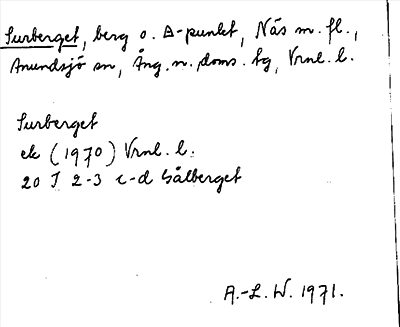 Surberget, berg o. Δ-punkt, Näs m. fl.,
Anundsjö sn, Ång. n. doms. tg, Vrnl. l.
Surberget
ek (1970) Vrnl. l.
20 I 2-3 c-d Gålberget
A.-L. W. 1971.